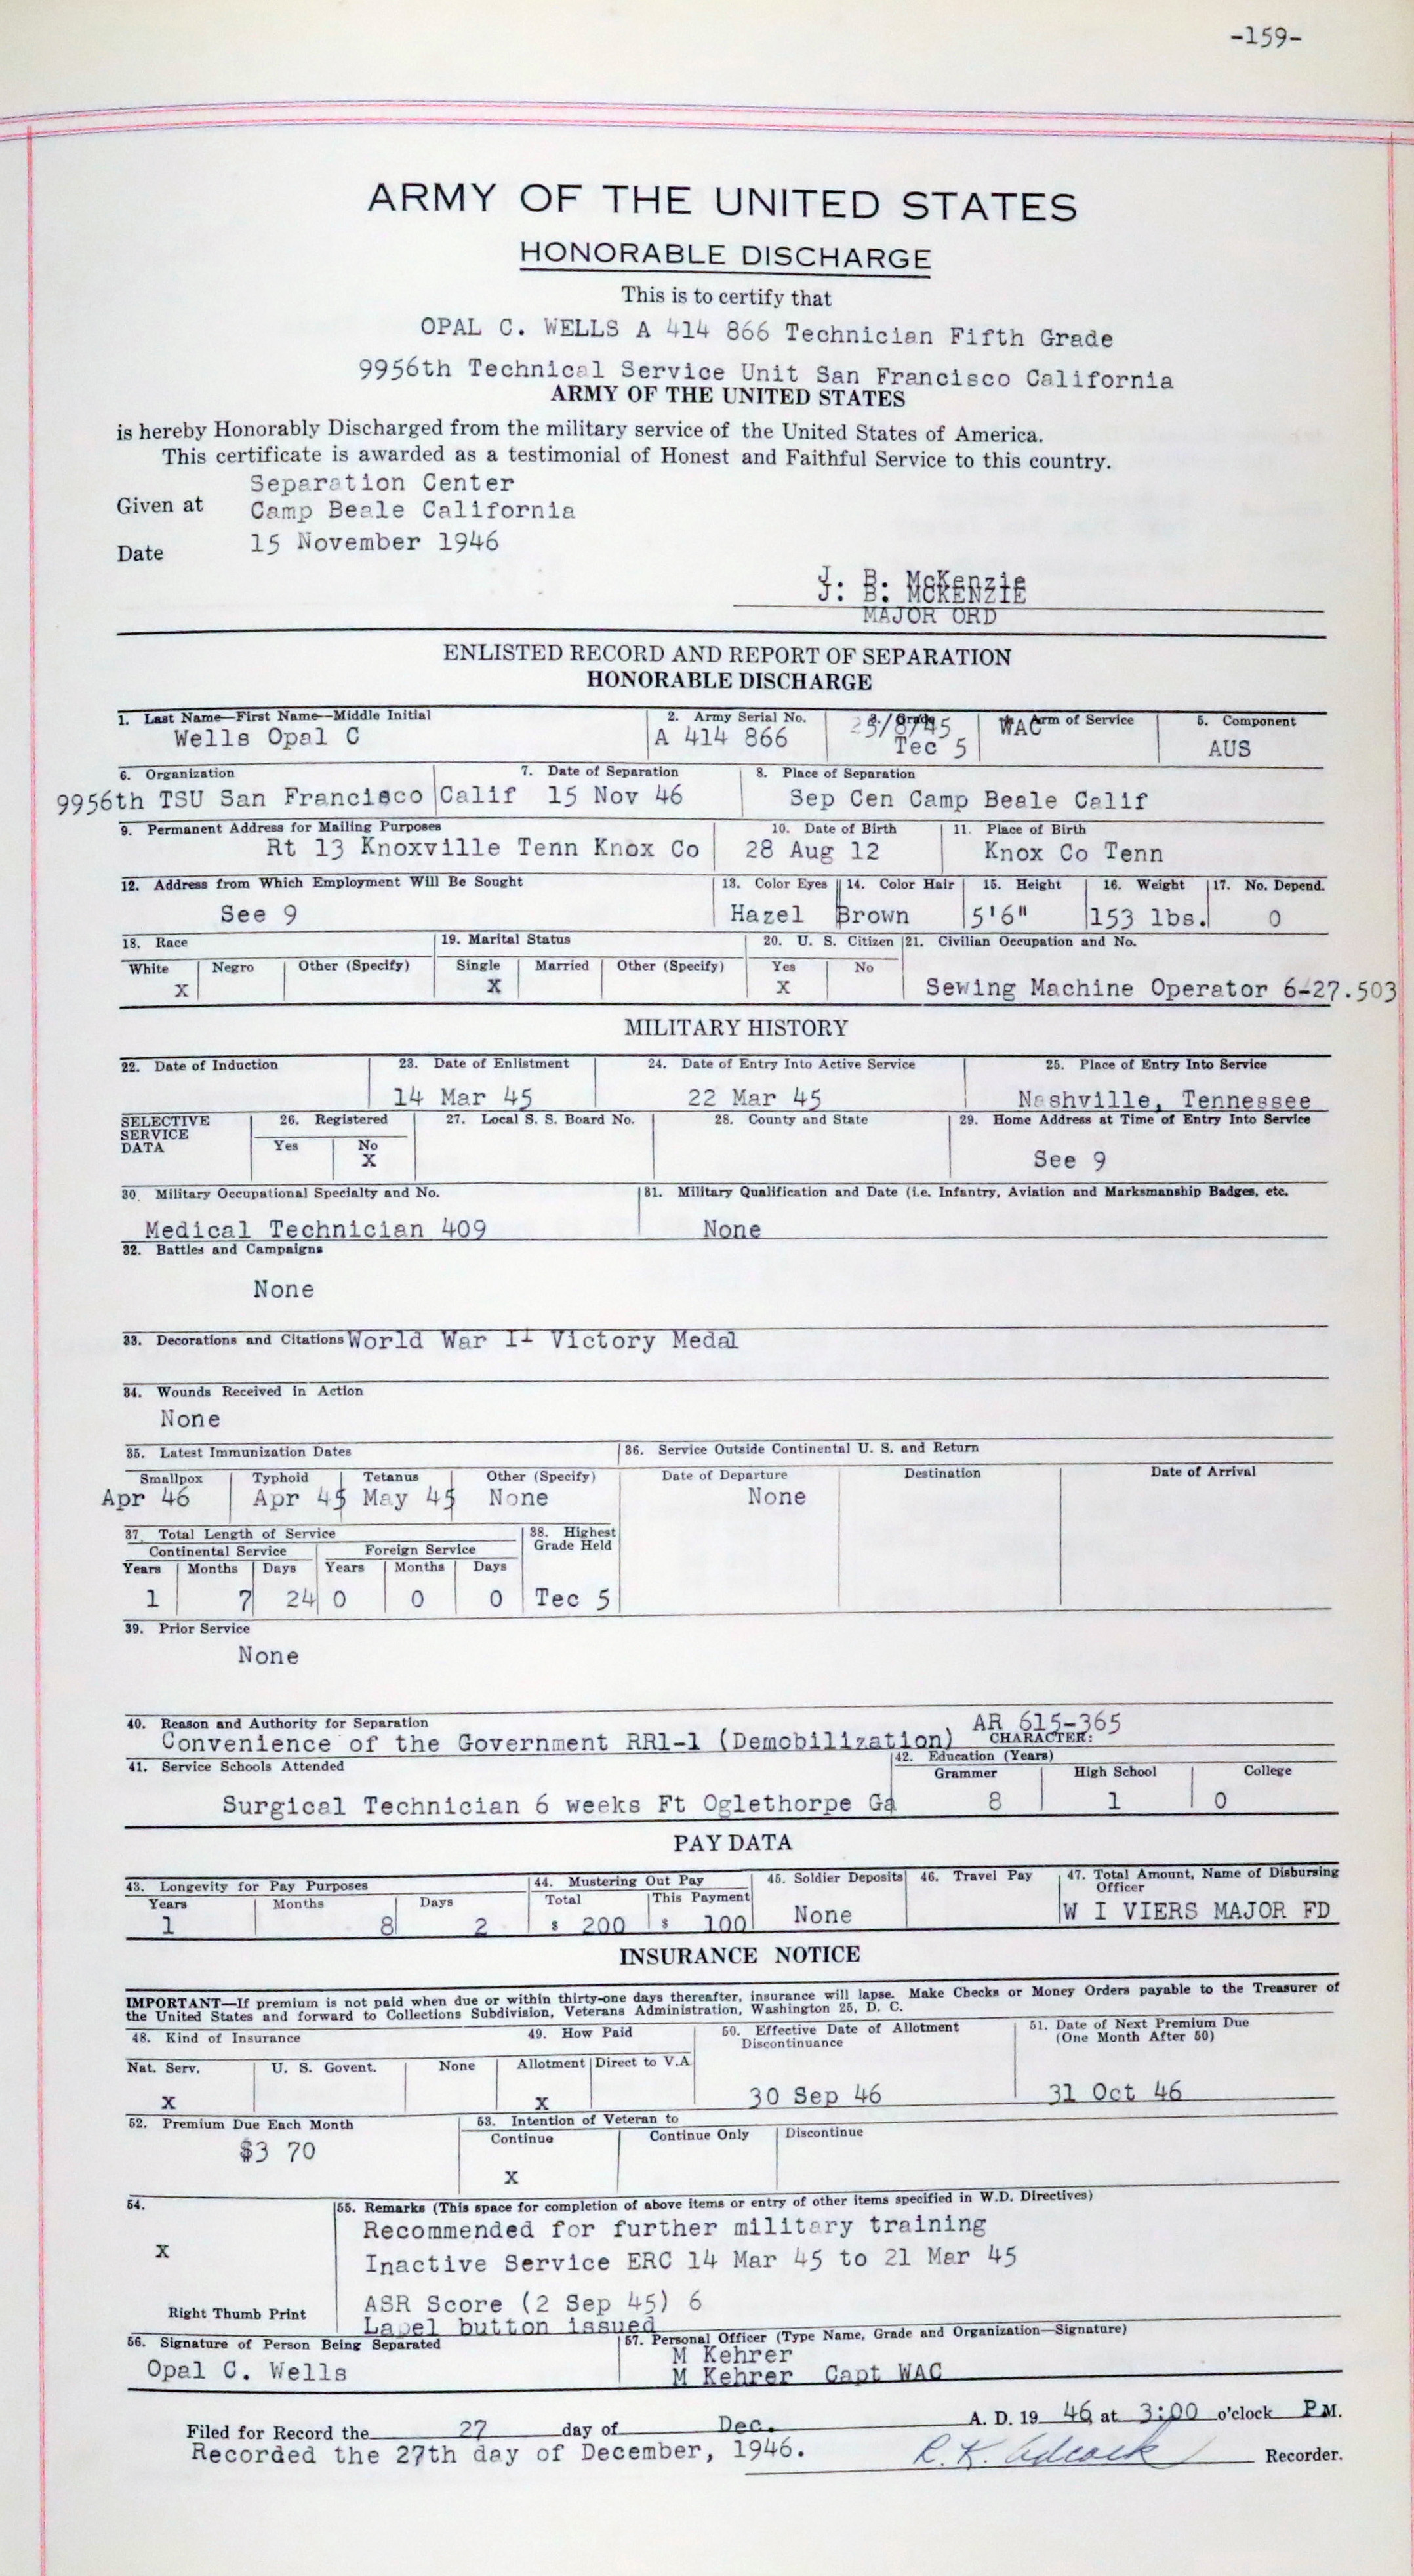 -159-
ARMY OF THE UNITED STATES
HONORABLE DISCHARGE
This is to certify that
OPAL C. WELLS A 414 866 Technician Fifth Grade
9956th Technical Service Unit San Francisco California
ARMY OF THE UNITED STATES
is hereby Honorably Discharged from the military service of the United States of America.
This certificate is awarded as a testimonial of Honest and Faithful Service to this country.
Separation Center
Given at Camp Beale California
Date 15 November 1946
J. B. McKenzie
J. B. MCKENZIE
MAJOR ORD
ENLISTED RECORD AND REPORT OF SEPARATION
HONORABLE DISCHARGE
1. Last Name—First Name—Middle Initial 2. Army Serial No. 3. Grade Arm of Service 5. Component
Wells Opal C A 414 866 Tec 5 WAC AUS
6. Organization 7. Date of Separation 8. Place of Separation
9956th TSU San Francisco Calif 15 Nov 46 Sep Cen Camp Beale Calif
9. Permanent Address for Mailing Purposes 10. Date of Birth 11. Place of Birth
Rt 13 Knoxville Tenn Knox Co 28 Aug 12 Knox Co Tenn
12. Address from Which Employment Will Be Sought 13. Color Eyes 14. Color Hair 15. Height 16. Weight 17. No. Depend.
See 9 Hazel Brown 5'6" 153 lbs. 0
18. Race 19. Marital Status 20. U. S. Citizen 21. Civilian Occupation and No.
White Negro Other (Specify) Single Married Other (Specify) Yes No
X X X Sewing Machine Operator 6-27.503
MILITARY HISTORY
22. Date of Induction 23. Date of Enlistment 24. Date of Entry Into Active Service 25. Place of Entry Into Service
14 Mar 45 22 Mar 45 Nashville, Tennessee
SELECTIVE SERVICE DATA 26. Registered 27. Local S. S. Board No. 28. County and State 29. Home Address at Time of Entry Into Service
Yes No
X See 9
30. Military Occupational Specialty and No. 31. Military Qualification and Date (i.e. Infantry, Aviation and Marksmanship Badges, etc.
Medical Technician 409 None
32. Battles and Campaigns
None
33. Decorations and Citations World War II Victory Medal
34. Wounds Received in Action
None
35. Latest Immunization Dates 36. Service Outside Continental U. S. and Return
Smallpox Typhoid Tetanus Other (Specify) Date of Departure Destination Date of Arrival
Apr 46 Apr 45 May 45 None None
37. Total Length of Service 38. Highest Grade Held
Continental Service Foreign Service
Years Months Days Years Months Days
1 7 24 0 0 0 Tec 5
39. Prior Service
None
40. Reason and Authority for Separation AR 615-365
Convenience of the Government RR1-1 (Demobilization) CHARACTER:
41. Service Schools Attended 42. Education (Years)
Grammer High School College
Surgical Technician 6 weeks Ft Oglethorpe Ga 8 1 0
PAY DATA
43. Longevity for Pay Purposes 44. Mustering Out Pay 45. Soldier Deposits 46. Travel Pay 47. Total Amount, Name of Disbursing Officer
Years Months Days Total This Payment
1 8 2 $ 200 $ 100 None W I VIERS MAJOR FD
INSURANCE NOTICE
IMPORTANT—If premium is not paid when due or within thirty-one days thereafter, insurance will lapse. Make Checks or Money Orders payable to the Treasurer of
the United States and forward to Collections Subdivision, Veterans Administration, Washington 25, D. C.
48. Kind of Insurance 49. How Paid 50. Effective Date of Allotment Discontinuance 51. Date of Next Premium Due (One Month After 50)
Nat. Serv. U. S. Govent. None Allotment Direct to V.A
X X 30 Sep 46 31 Oct 46
52. Premium Due Each Month 53. Intention of Veteran to
Continue Continue Only Discontinue
$3 70
X
54. 55. Remarks (This space for completion of above items or entry of other items specified in W.D. Directives)
Recommended for further military training
X Inactive Service ERC 14 Mar 45 to 21 Mar 45
ASR Score (2 Sep 45) 6
Right Thumb Print
Lapel button issued
56. Signature of Person Being Separated 57. Personal Officer (Type Name, Grade and Organization—Signature)
M Kehrer
Opal C. Wells M Kehrer Capt WAC
Filed for Record the 27 day of Dec. A. D. 19 46 at 3:00 o'clock P M.
Recorded the 27th day of December, 1946. R. K. Adcock Recorder.